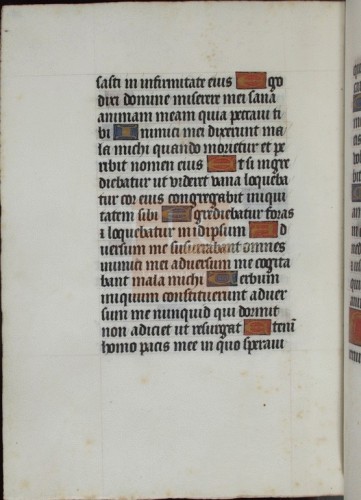 sasti in infirmitate eius Ego
dixi domine miserere mei sana
animam meam quia peccavi ti
bi Inimici mei dixerunt ma
la michi quando morietur et pe
ribit nomen eius Et si ingre
diebatur ut videret vana loqueba
tur cor eius congregabit iniqui
tatem sibi Egrediebatur foras
⁊ loquebatur in idipsum Ad
versum me susurrabant omnes
inimici mei adversum me cogita
bant mala michi Verbum
iniquum constituerunt adver
sum me nunquid qui dormit
non adiciet ut resurgat Eteni
homo pacis mee in quo speravi